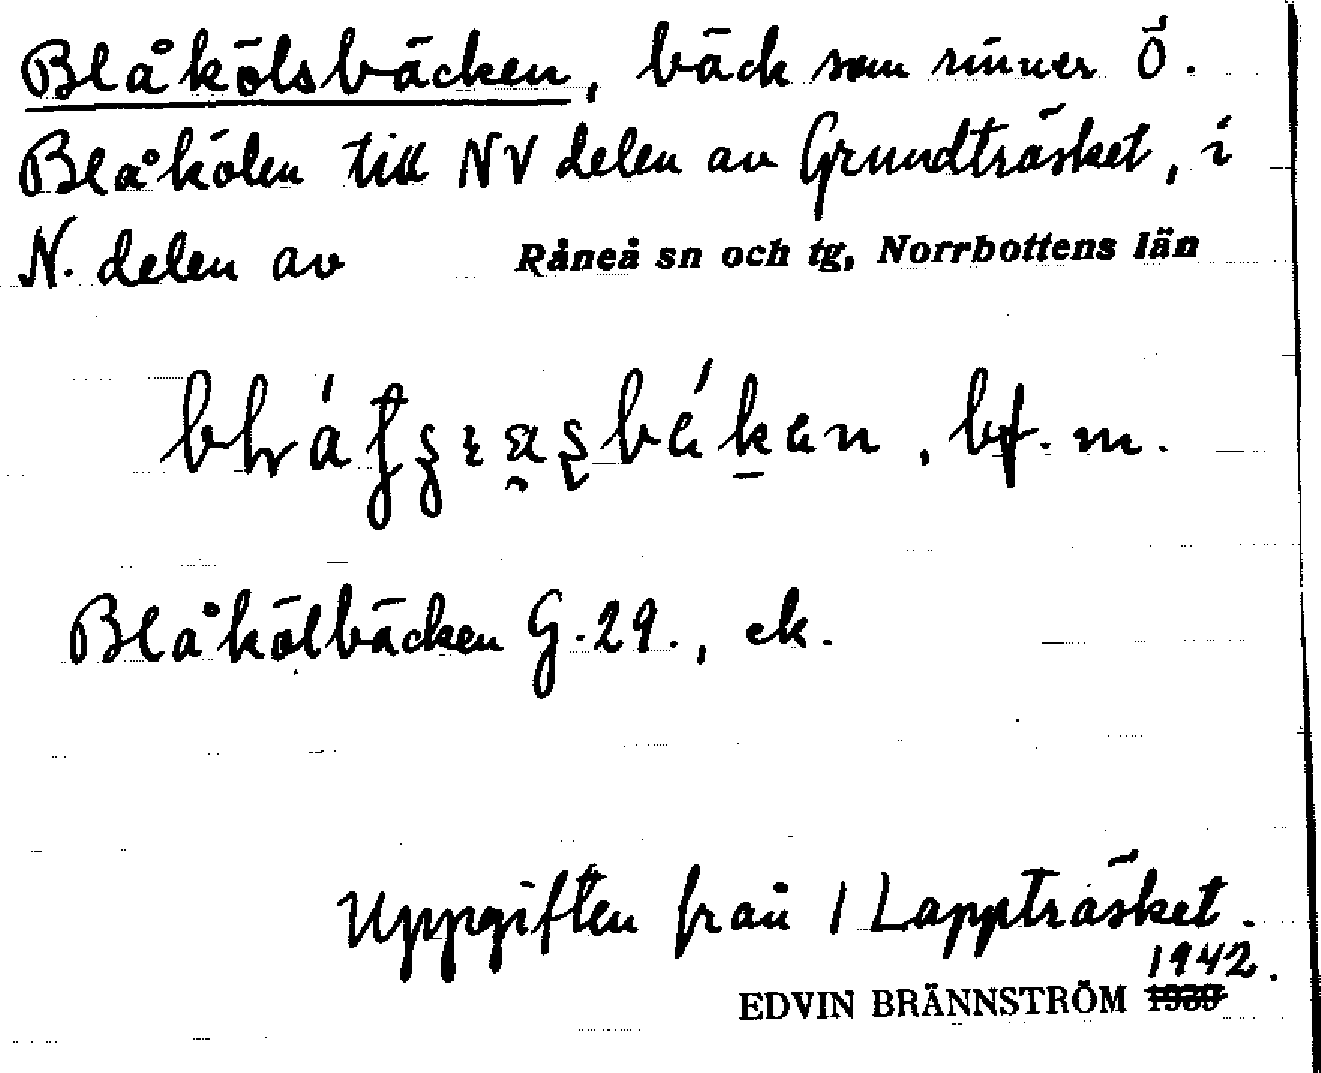 Blåkölsbäcken, bäck som rinner Ö.
Blåkölen till NV delen av Grundträsket, i
N. delen av Råneå sn och tg, Norrbottens län
, bf. m.
Blåkölbäcken G. 29., ek.
Uppgiften från 1 Lappträsket.
1942.
EDVIN BRÄNNSTRÖM 1939